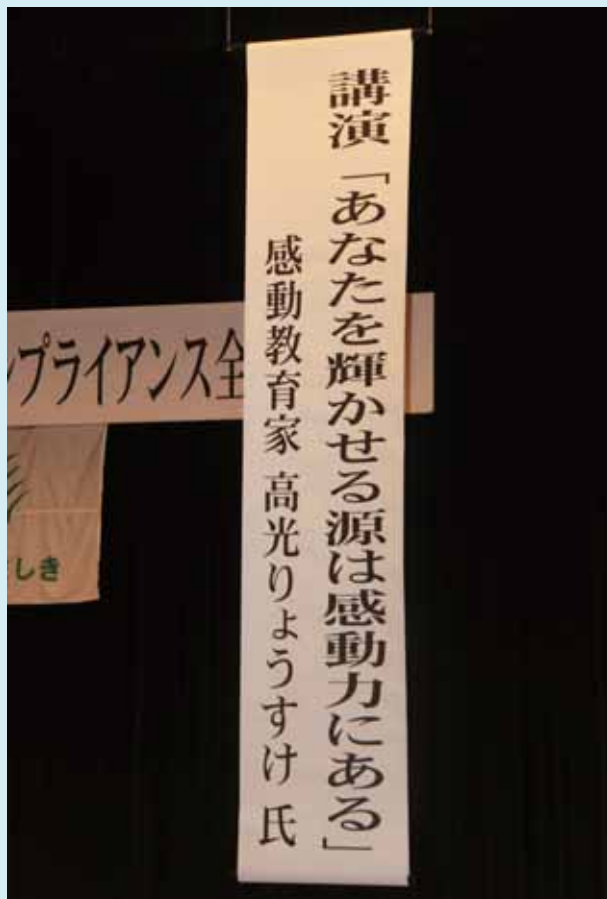 講演「あなたを輝かせる源は感動力にある」
感動教育家 高光りょうすけ 氏
ンプライアンス全
しき